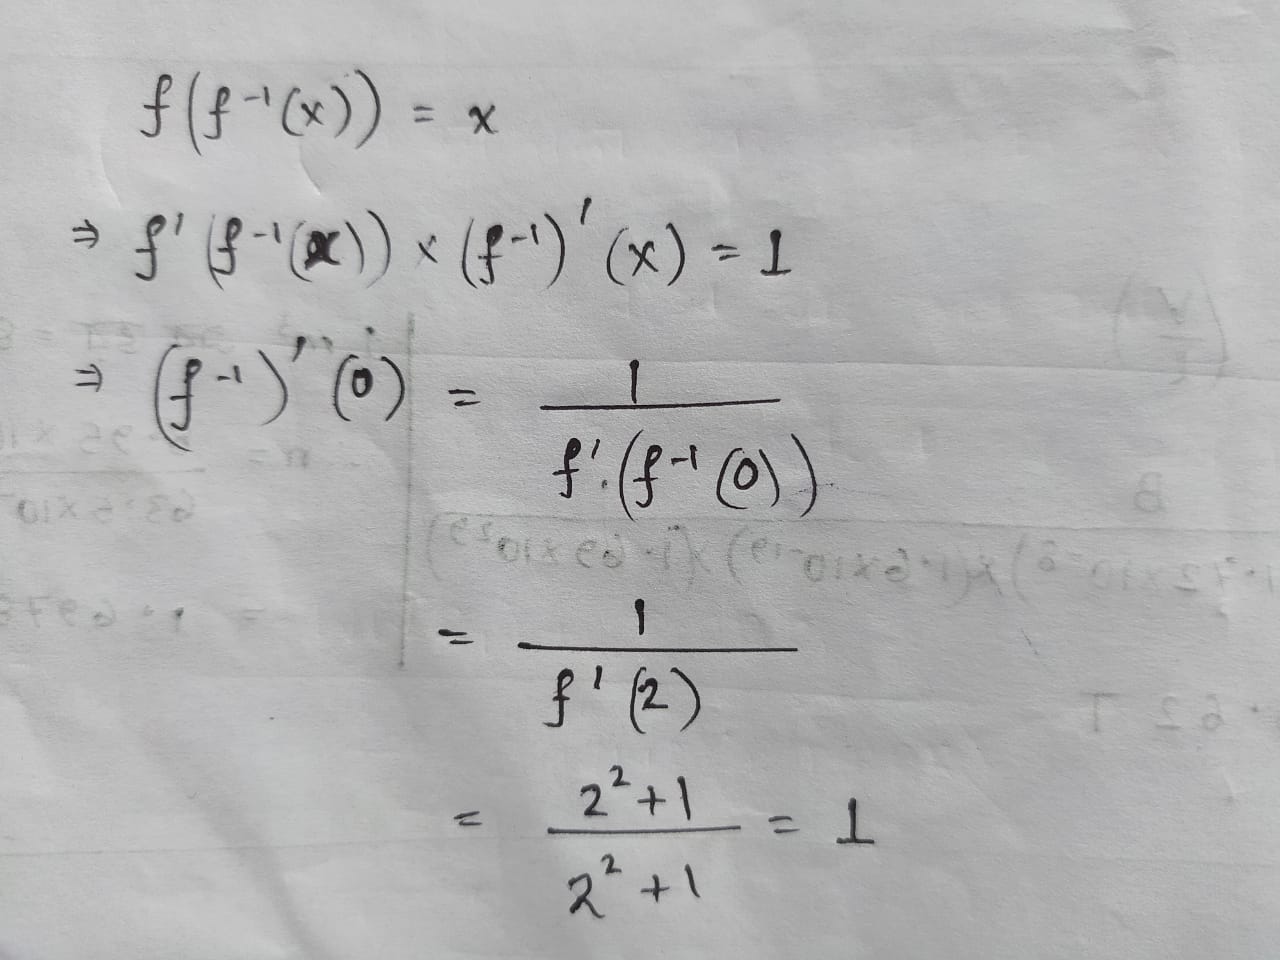 f(f⁻¹(x)) = x
⇒ f'(f⁻¹(x)) × (f⁻¹)'(x) = 1
⇒ (f⁻¹)'(0) = 1 / f'(f⁻¹(0))
= 1 / f'(2)
= (2² + 1) / (2² + 1) = 1